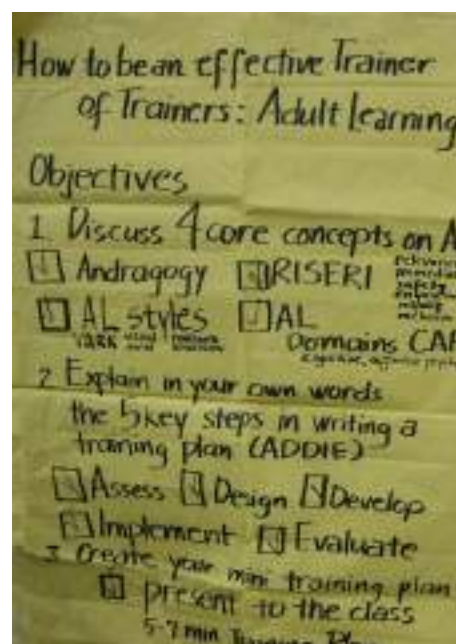 How to be an effective Trainer
of Trainers: Adult Learning
Objectives
1 Discuss 4 core concepts on A
Andragogy RISERI
AL styles AL
VARK Domains CAP
2 Explain in your own words
the 5 key steps in writing a
training plan (ADDIE)
Assess Design Develop
Implement Evaluate
3 Create your mini training plan
present to the class
5-7 min Training